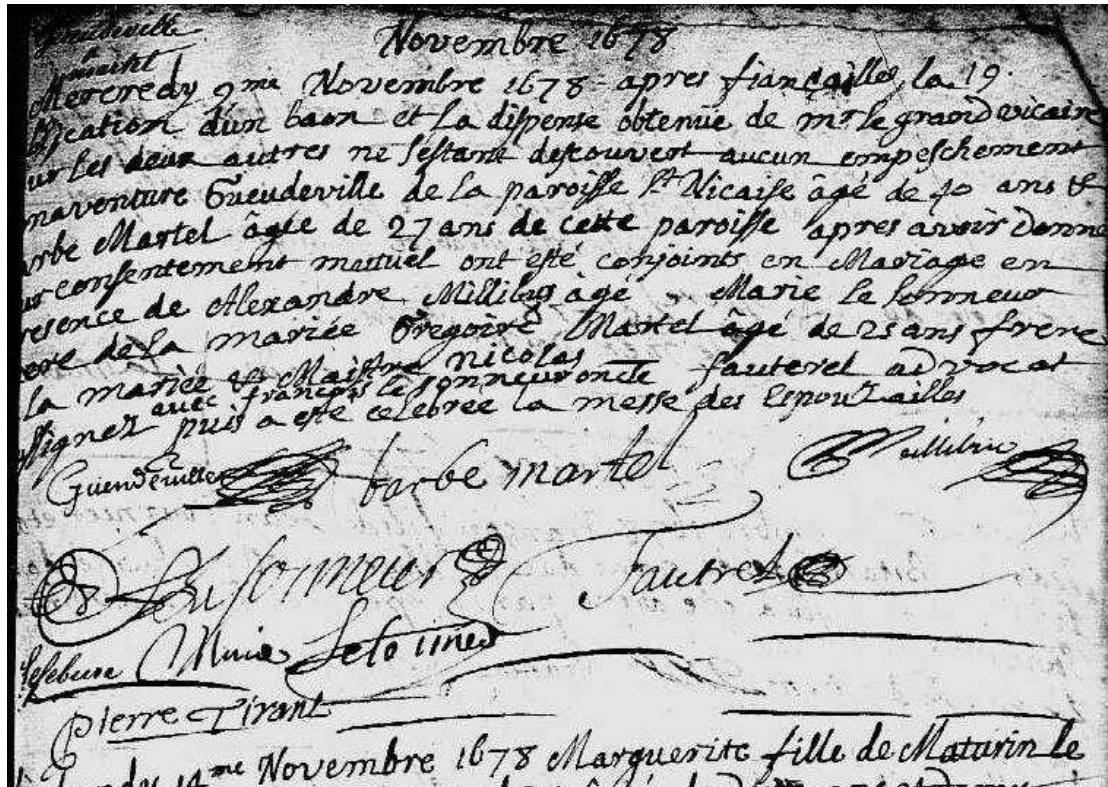 Novembre 1678
Mercredy 9me Novembre 1678 apres fiançailles, la
d'un baon et la dispense obtenüe de mr le grand vicaire
les deux autres ne s'estant descouvert aucun empeschement
Gueudeville de la paroisse St Nicaise âgé de 40 ans &
Martel âgée de 27 ans de cette paroisse apres avoir donné
consentement mutuel ont esté conjoints en Mariage en
de Alexandre Millibus âgé Marie le
de la mariée Gregoire Martel âgé de 25 ans frere
La mariée & Maistre nicolas fauterel advocat
avec françois le sonneur oncle
puis a esté celebrée la messe des Espouzailles
Gueudeville barbe martel
Le sonneur Fautrel
lefebure Marie
Pierre Tirant
14me Novembre 1678 Marguerite fille de Maturin le